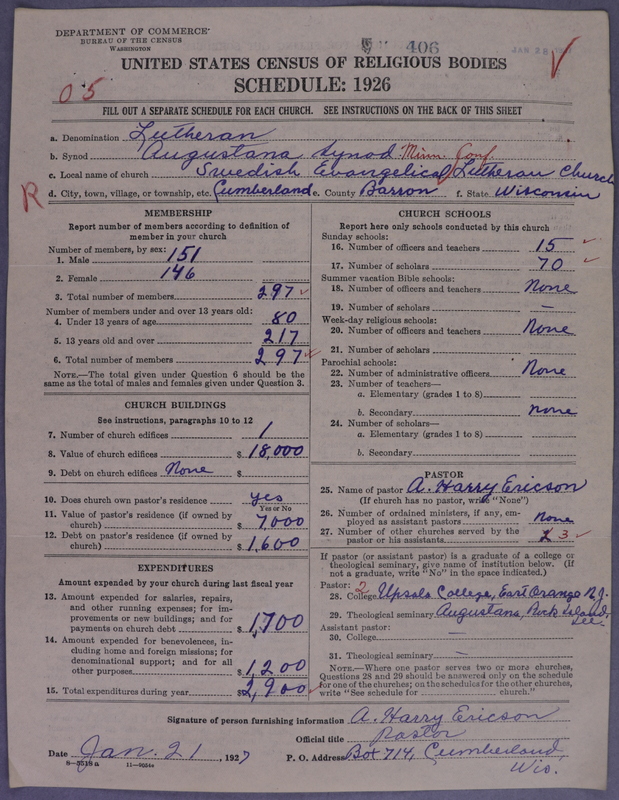 DEPARTMENT OF COMMERCE
BUREAU OF THE CENSUS
WASHINGTON
406
UNITED STATES CENSUS OF RELIGIOUS BODIES
SCHEDULE: 1926
05
FILL OUT A SEPARATE SCHEDULE FOR EACH CHURCH. SEE INSTRUCTIONS ON THE BACK OF THIS SHEET
a. Denomination Lutheran
b. Synod Augustana Synod Minn. Conf.
c. Local name of church Swedish Evangelical Lutheran Church
R
d. City, town, village, or township, etc. Cumberland e. County Barron f. State Wisconsin
MEMBERSHIP
Report number of members according to definition of
member in your church
Number of members, by sex:
1. Male 151
2. Female 146
3. Total number of members 297
Number of members under and over 13 years old:
4. Under 13 years of age 80
5. 13 years old and over 217
6. Total number of members 297
NOTE.—The total given under Question 6 should be
same as the total of males and females given under Question 3.
CHURCH BUILDINGS
See instructions, paragraphs 10 to 12
7. Number of church edifices 1
8. Value of church edifices $ 18,000
9. Debt on church edifices None $
10. Does church own pastor's residence yes
Yes or No
11. Value of pastor's residence (if owned by
church) $ 7,000
12. Debt on pastor's residence (if owned by
church) $ 1,600
EXPENDITURES
Amount expended by your church during last fiscal year
13. Amount expended for salaries, repairs,
and other running expenses; for im-
provements or new buildings; and for
payments on church debt $ 1,700
14. Amount expended for benevolences, in-
cluding home and foreign missions; for
denominational support; and for all
other purposes $ 1,200
15. Total expenditures during year $ 2,900
CHURCH SCHOOLS
Report here only schools conducted by this church
Sunday schools:
16. Number of officers and teachers 15
17. Number of scholars 70
Summer vacation Bible schools:
18. Number of officers and teachers None
19. Number of scholars —
Week-day religious schools:
20. Number of officers and teachers None
21. Number of scholars
Parochial schools:
22. Number of administrative officers None
23. Number of teachers—
a. Elementary (grades 1 to 8)
b. Secondary none
24. Number of scholars—
a. Elementary (grades 1 to 8)
b. Secondary
PASTOR
25. Name of pastor A. Harry Ericson
(If church has no pastor, write "None")
26. Number of ordained ministers, if any, em-
ployed as assistant pastors none
27. Number of other churches served by the
pastor or his assistants 3
If pastor (or assistant pastor) is a graduate of a college or
theological seminary, give name of institution below. (If
not a graduate, write "No" in the space indicated.)
Pastor: 2
28. College Upsala College, East Orange N.J.
29. Theological seminary Augustana, Rock Island,
Ill.
Assistant pastor:
30. College —
31. Theological seminary —
NOTE.—Where one pastor serves two or more churches,
Questions 28 and 29 should be answered only on the schedule
for one of the churches; on the schedules for the other churches,
write "See schedule for church."
Signature of person furnishing information A. Harry Ericson
Official title Pastor
Date Jan. 21, 1927 P. O. Address Box 714, Cumberland,
Wis.
8-3518a 11-9554